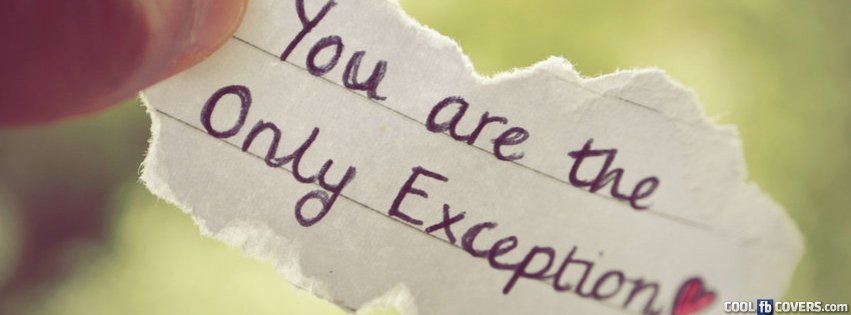 You are the
Only Exception
COOL fb COVERS.com